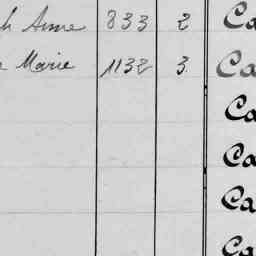 h Anne 833 2 Ca
e Marie 1132 3 Ca
Ca
Ca
Ca
Ca